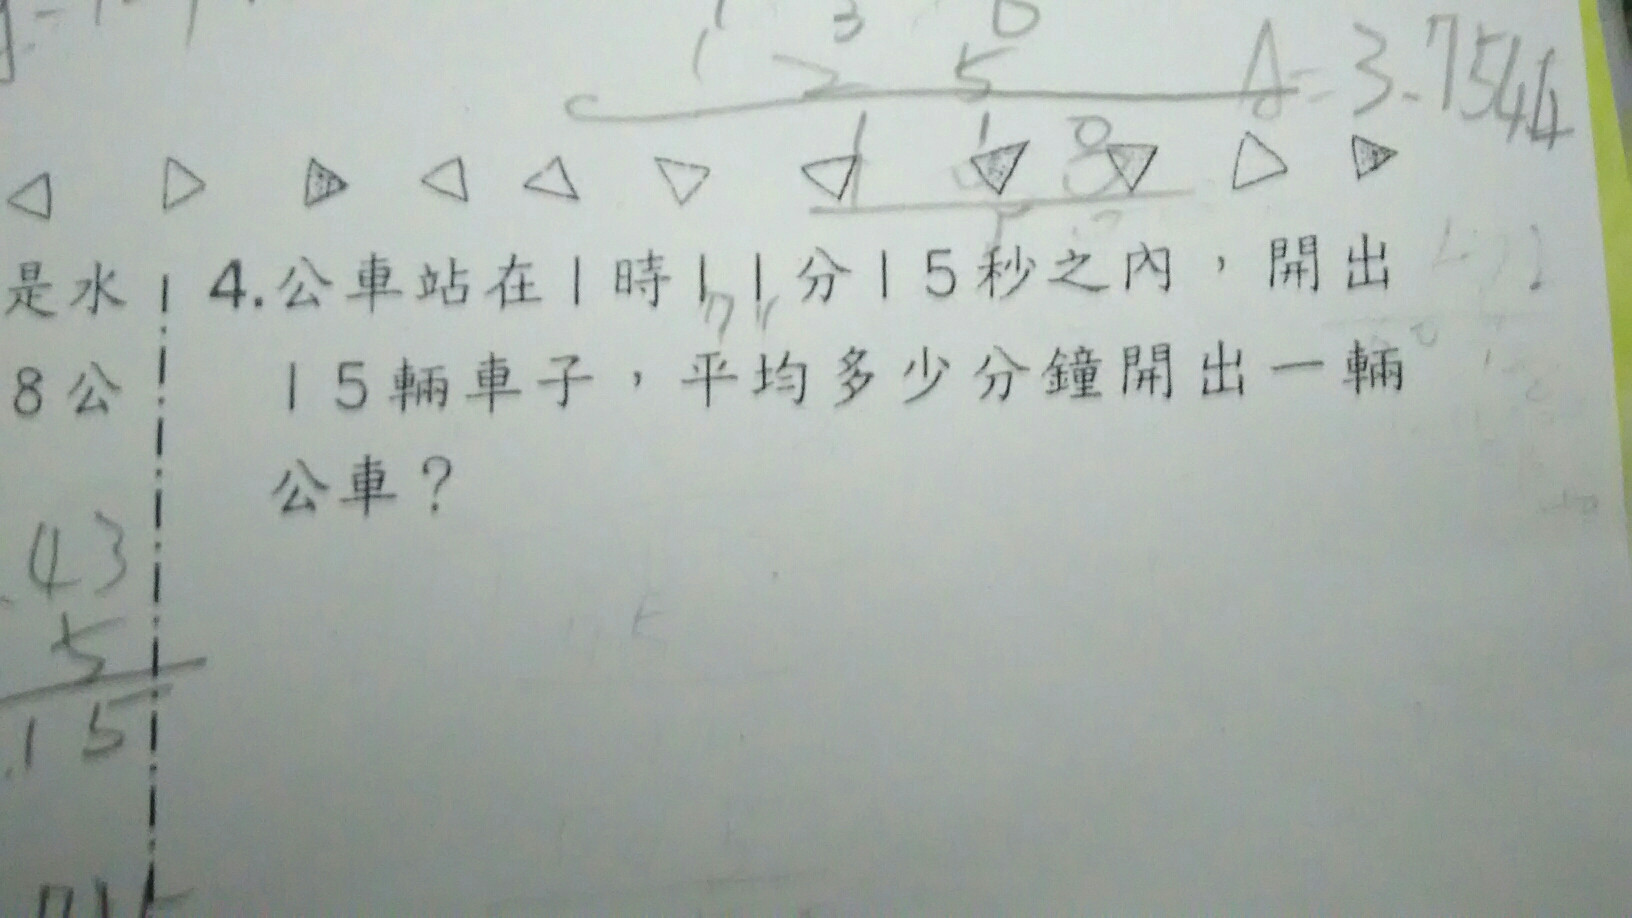 1 3 0
1 2 5
A=3.7544
1 1 8
4.公車站在1時11分15秒之內,開出
71
15輛車子,平均多少分鐘開出一輛
公車?
是水
8公
43
5
15